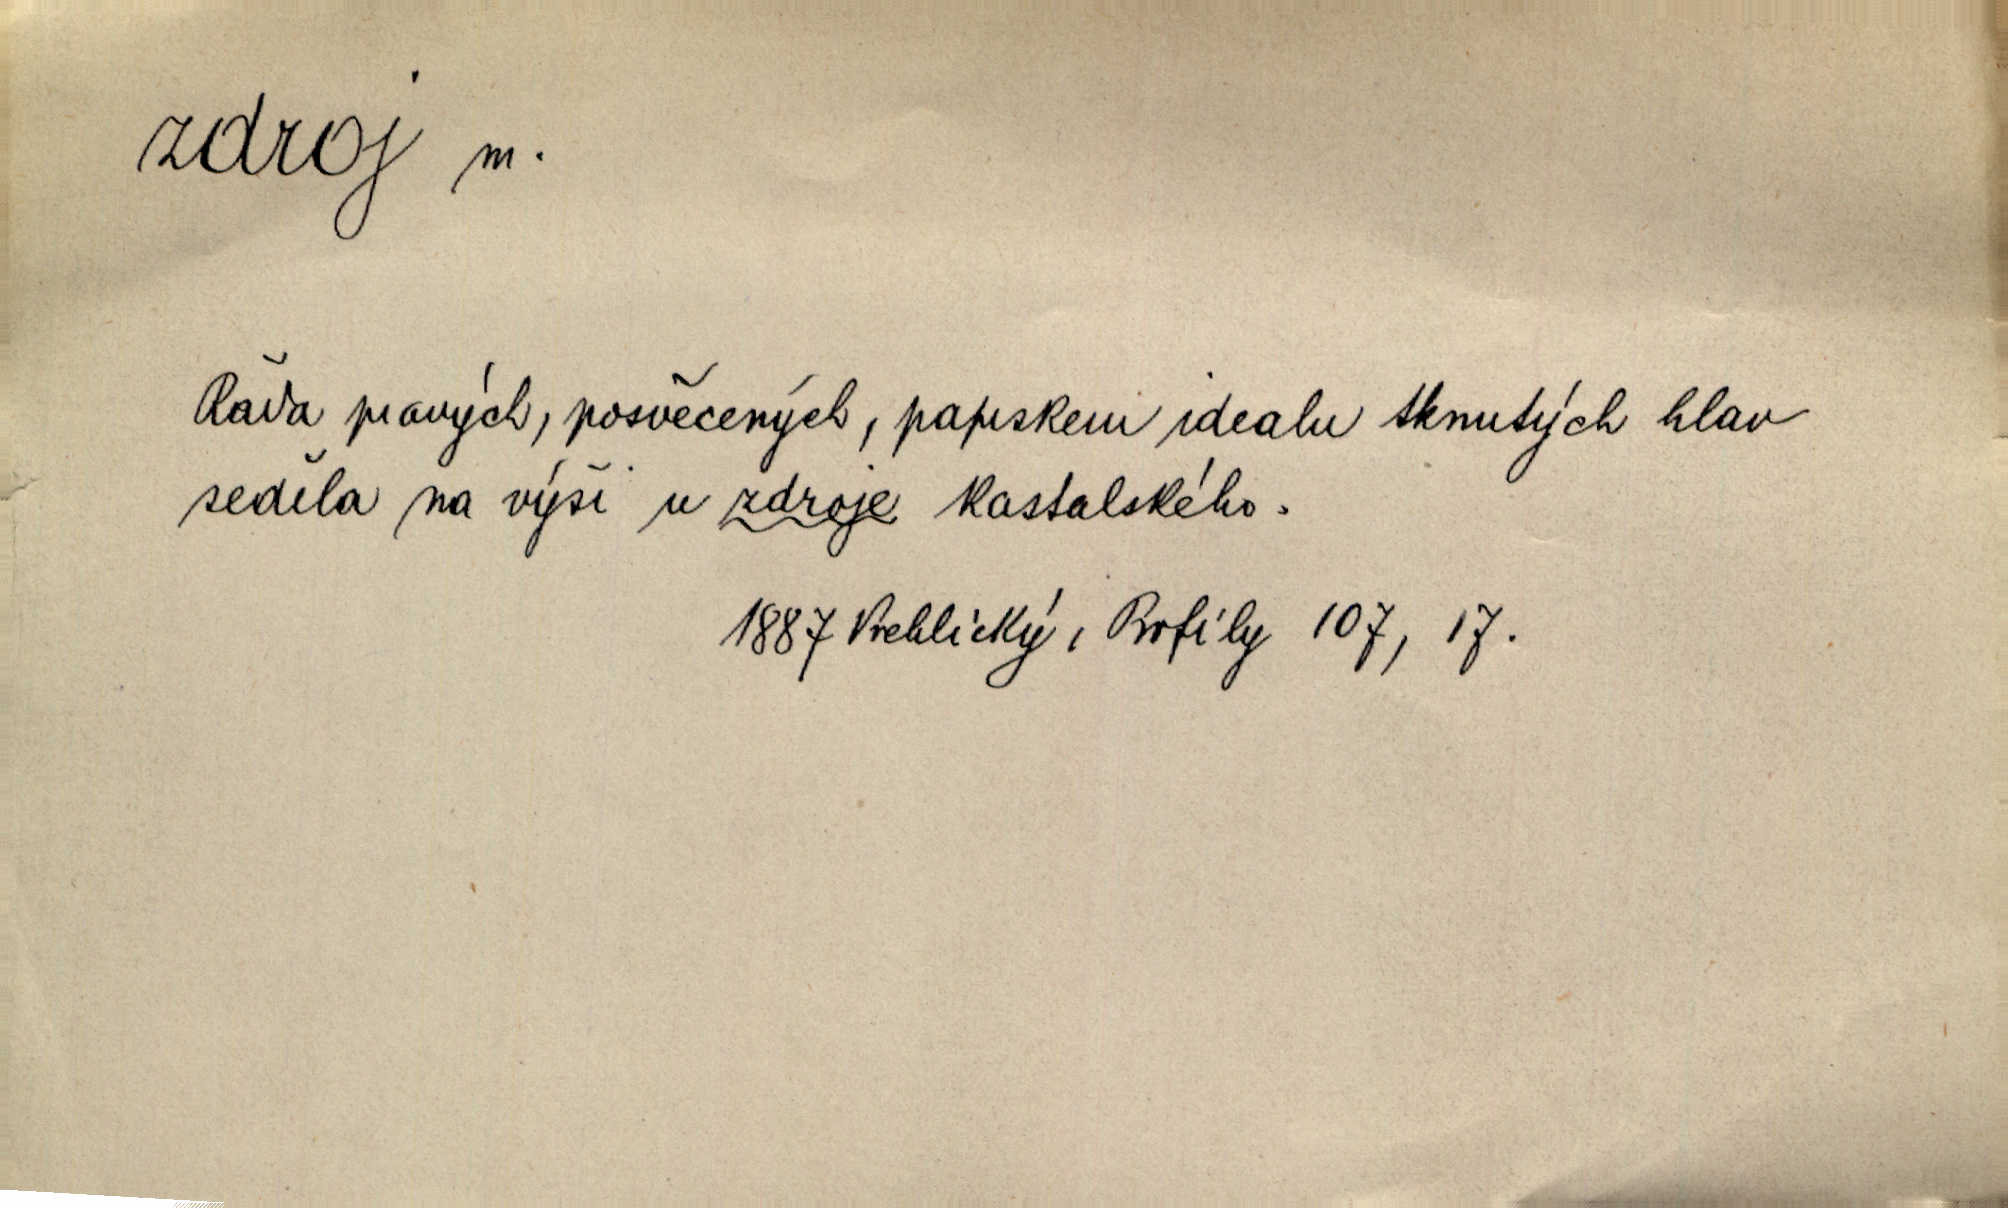 zdroj m.
Řada pravých, posvěcených, paprskem idealu tknutých hlav
seděla na výši u zdroje kastalského.
1887 Vrchlický, Profily 107, 17.